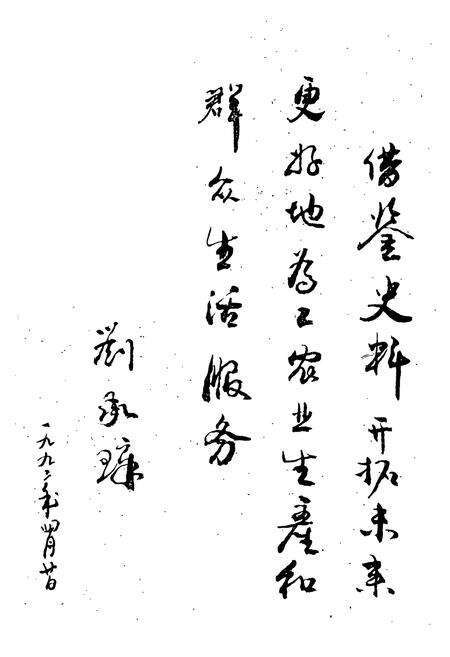 借鉴史料开拓未来
更好地为工农业生產和
群众生活服务
劉承璋
一九九二年四月廿日